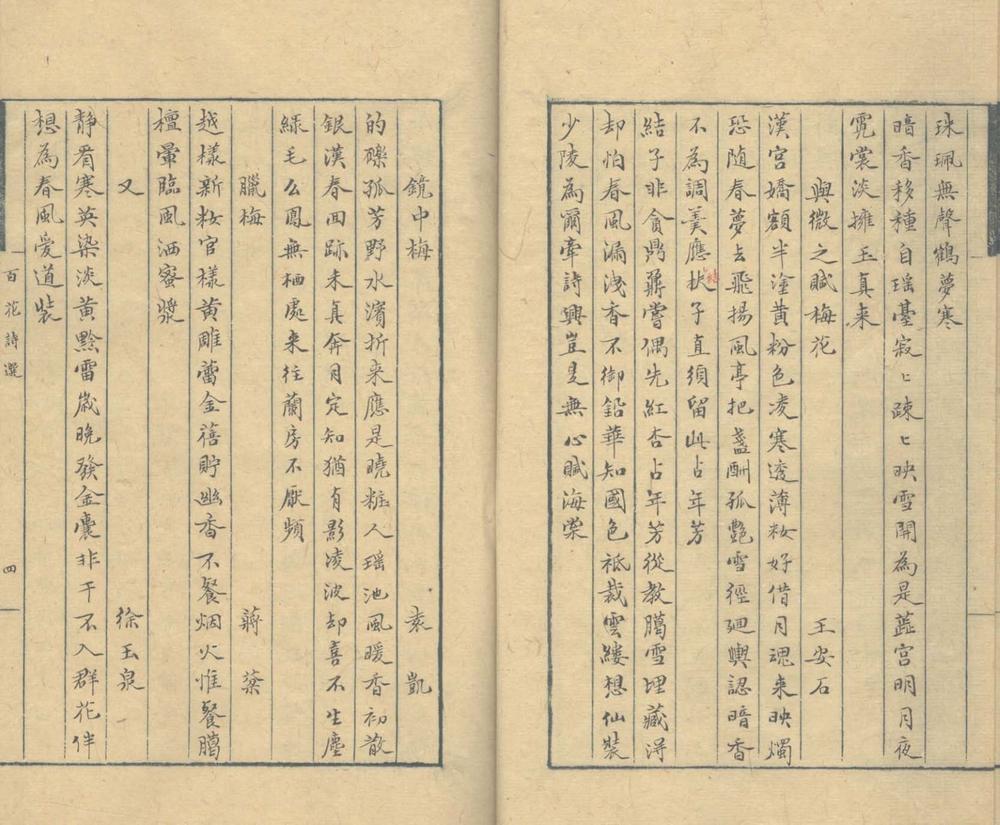 珠珮無聲鶴夢寒
暗香移種自瑶臺寂〻踈〻映雪開為是蕋宫明月夜
霓裳淡擁玉真来
與微之賦梅花 王安石
漢宮嬌額半塗黄粉色凌寒透薄妝好借月魂来映燭
恐随春夢去飛揚風亭把盞酬孤艶雪徑廻輿認暗香
不為調羹應扶結子直須留此占年芳
結子非貪鼎鼐嘗偶先紅杏占年芳從教臈雪埋藏得
却怕春風漏洩香不御鉛華知國色祗裁雲縷想仙裝
少陵為爾牽詩興豈是無心賦海棠
鏡中梅 袁凱
的礫孤芳野水濱折来應是曉粧人瑶池風暖香初散
銀漢春回跡未真奔月定知猶有影凌波却喜不生塵
緑毛么鳳無栖處来往蘭房不厭頻
臘梅 蔣棻
越樣新妝官樣黄雕蕾金蓓貯幽香不餐烟火惟餐臈
檀暈臨風洒蜜漿
又 徐玉泉
静看寒英染淡黄黔雷歲晚發金囊非干不入群花伴
想為春風愛道裝
百花詩選
四